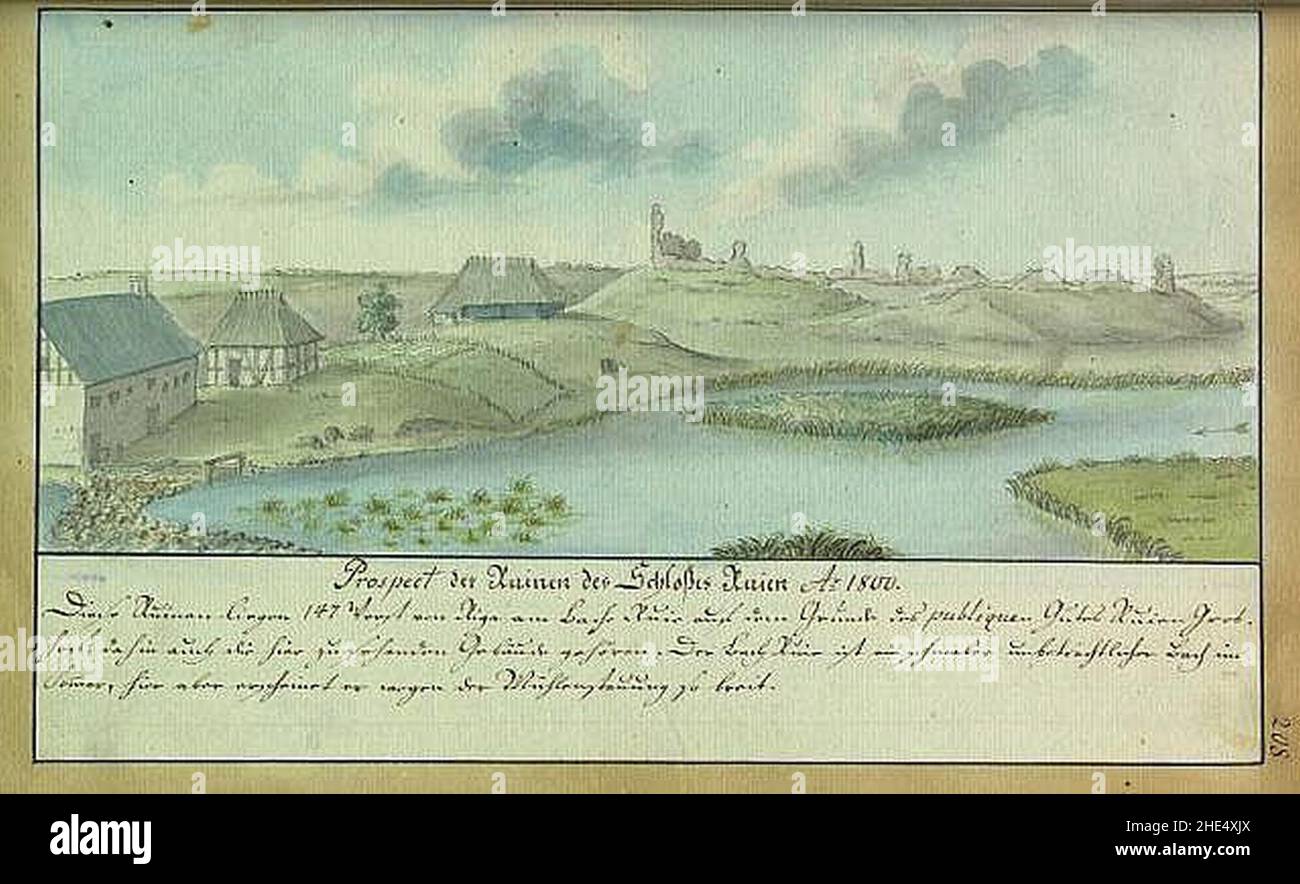 Prospect der Ruinen des Schloßes Ruien Ao 1800.
Diese Ruinen liegen 147 Werst von Riga am Bache Ruie auf dem Grunde des publiquen Gutes Ruien Groß-
hof, dahin auch die hier zu sehenden Gebäude gehören. Der Bach Ruie ist ein schmaler unbeträchtlicher Bach im
Sommer, hier aber erscheinet er wegen der Mühlenstauung so breit.
208
alamy
Image ID: 2HE4XJX
www.alamy.com